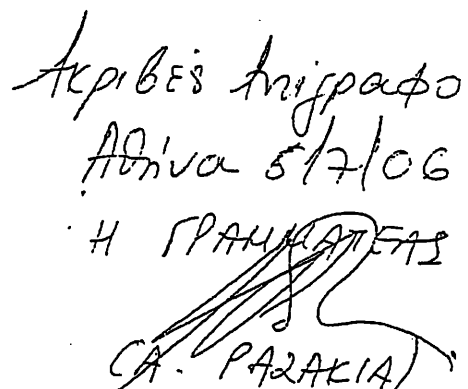 Ακριβές Αντίγραφο
Αθήνα 5/7/06
Η ΓΡΑΜΜΑΤΕΑΣ
(Α.